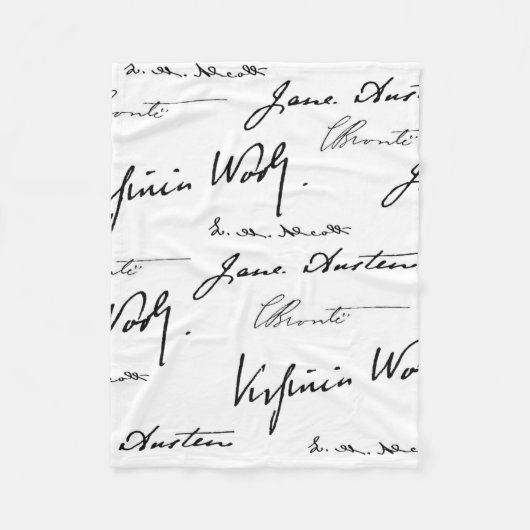 L. M. Alcott
Jane Austen
Brontë
CBrontë
Virginia Woolf.
J
L. M. Alcott
Jane Austen
ntë
CBrontë
Woolf.
Virginia Woo
Alcott
Austen
L. M. Alcott